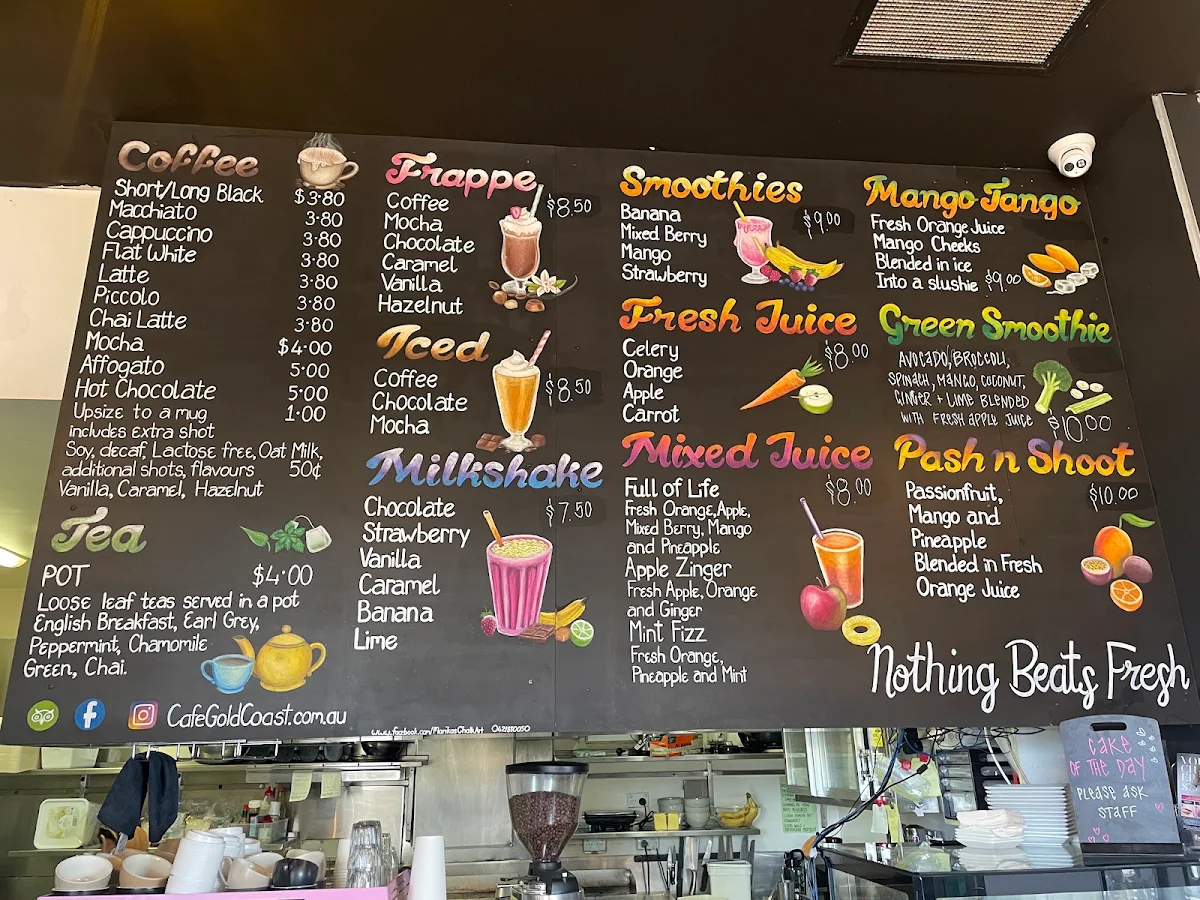 Coffee
Short/Long Black $3.80
Macchiato 3.80
Cappuccino 3.80
Flat White 3.80
Latte 3.80
Piccolo 3.80
Chai Latte 3.80
Mocha $4.00
Affogato 5.00
Hot Chocolate 5.00
Upsize to a mug 1.00
includes extra shot
Soy, decaf, Lactose free, Oat Milk,
additional shots, flavours 50¢
Vanilla, Caramel, Hazelnut
Tea
POT $4.00
Loose leaf teas served in a pot
English Breakfast, Earl Grey,
Peppermint, Chamomile
Green, Chai.
CafeGoldCoast.com.au
Frappe
$8.50
Coffee
Mocha
Chocolate
Caramel
Vanilla
Hazelnut
Iced
$8.50
Coffee
Chocolate
Mocha
Milkshake
$7.50
Chocolate
Strawberry
Vanilla
Caramel
Banana
Lime
Smoothies
$9.00
Banana
Mixed Berry
Mango
Strawberry
Fresh Juice
$8.00
Celery
Orange
Apple
Carrot
Mixed Juice
$8.00
Full of Life
Fresh Orange, Apple,
Mixed Berry, Mango
and Pineapple
Apple Zinger
Fresh Apple, Orange
and Ginger
Mint Fizz
Fresh Orange,
Pineapple and Mint
Mango Tango
Fresh Orange Juice
Mango Cheeks
Blended in ice
Into a slushie $9.00
Green Smoothie
AVOCADO, BROCCOLI,
SPINACH, MANGO, COCONUT,
GINGER + LIME BLENDED
WITH FRESH APPLE JUICE $10.00
Pash n Shoot
$10.00
Passionfruit,
Mango and
Pineapple
Blended in Fresh
Orange Juice
Nothing Beats Fresh
CAKE
OF THE DAY
PLEASE ASK
STAFF